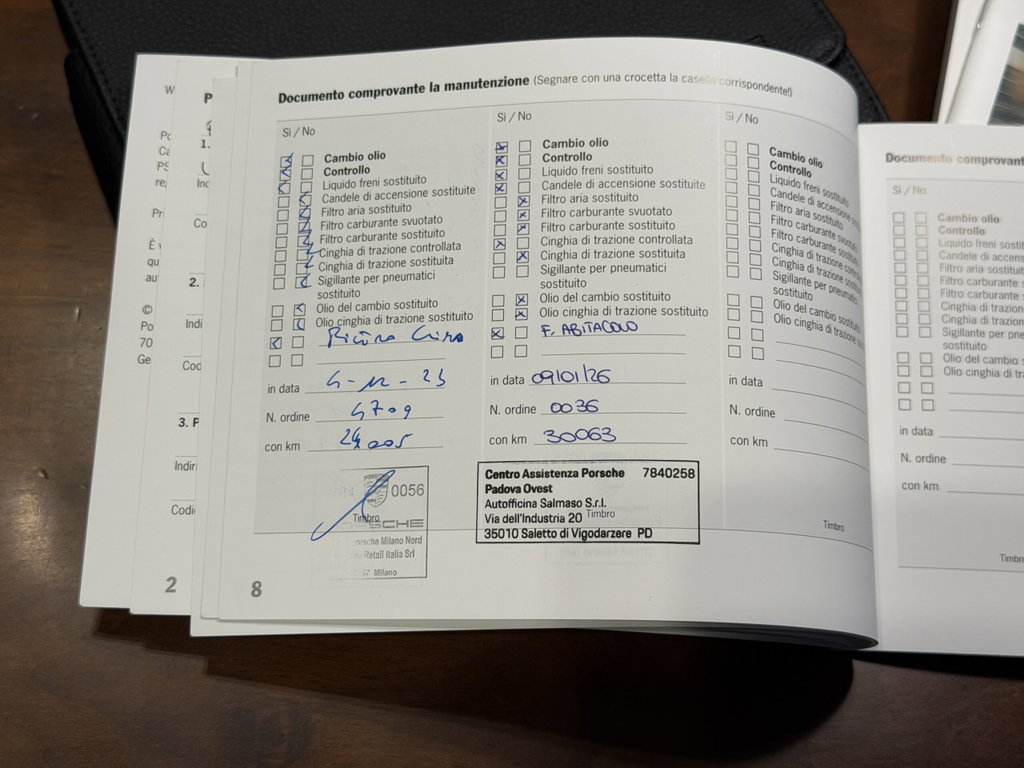 Documento comprovante la manutenzione (Segnare con una crocetta la casella corrispondente!)
Sì / No
Cambio olio
Controllo
Liquido freni sostituito
Candele di accensione sostituite
Filtro aria sostituito
Filtro carburante svuotato
Filtro carburante sostituito
Cinghia di trazione controllata
Cinghia di trazione sostituita
Sigillante per pneumatici
sostituito
Olio del cambio sostituito
Olio cinghia di trazione sostituito
in data 4-12-23
N. ordine 4709
con km
0056
Timbro
Porsche Milano Nord
Retail Italia Srl
Milano
Sì / No
Cambio olio
Controllo
Liquido freni sostituito
Candele di accensione sostituite
Filtro aria sostituito
Filtro carburante svuotato
Filtro carburante sostituito
Cinghia di trazione controllata
Cinghia di trazione sostituita
Sigillante per pneumatici
sostituito
Olio del cambio sostituito
Olio cinghia di trazione sostituito
F. ABITACOLO
in data 09/01/26
N. ordine 0036
con km 30063
Centro Assistenza Porsche 7840258
Padova Ovest
Autofficina Salmaso S.r.l.
Via dell'Industria 20
Timbro
35010 Saletto di Vigodarzere PD
Sì / No
Cambio olio
Controllo
Liquido freni sostituito
Candele di accensione
Filtro aria sostituito
Filtro carburante svuotato
Filtro carburante sostituito
Cinghia di trazione
Cinghia di trazione
Sigillante per
sostituito
Olio del cambio
Olio cinghia di trazione
in data
N. ordine
con km
Timbro
8
Documento
Sì / No
Cambio olio
Controllo
Liquido freni
Candele di
Filtro aria
Filtro carburante
Filtro carburante
Cinghia di
Cinghia di
Sigillante per
sostituito
Olio del cambio
Olio cinghia di
in data
N. ordine
con km
Timbro
1.
2.
3.
2